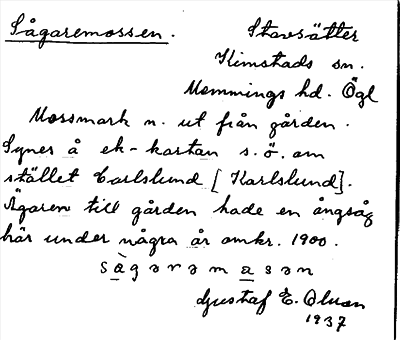 Sågaremossen. Stavsätter
Kimstads sn.
Memmings hd. Ögl
Mossmark n. ut från gården.
Synes å ek-kartan s.ö. om
stället Carlslund [Karlslund].
Ägaren till gården hade en ångsåg
här under några år omkr. 1900.
sà̱gərəma̱sən
Gustaf E. Olsson
1937